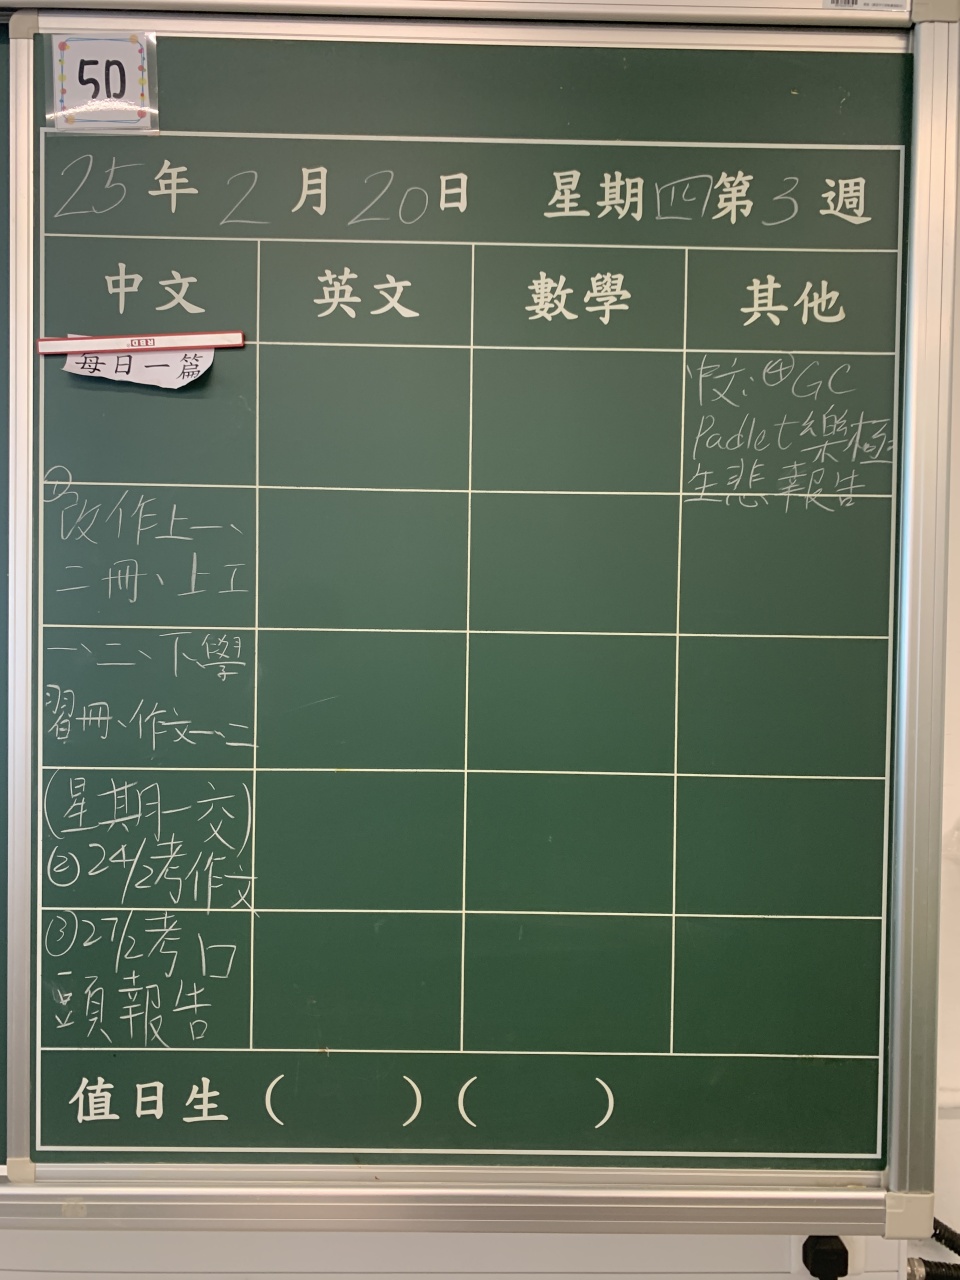 5D
25年2月20日 星期四第3週
中文 英文 數學 其他
每日一篇
①
改作上一、
二冊、上工
一、二、下學
習冊、作文一、二
(星期一交)
②24/2考作文
③27/2考口
頭報告
中文:④GC
Padlet樂極
生悲報告
值日生( )( )